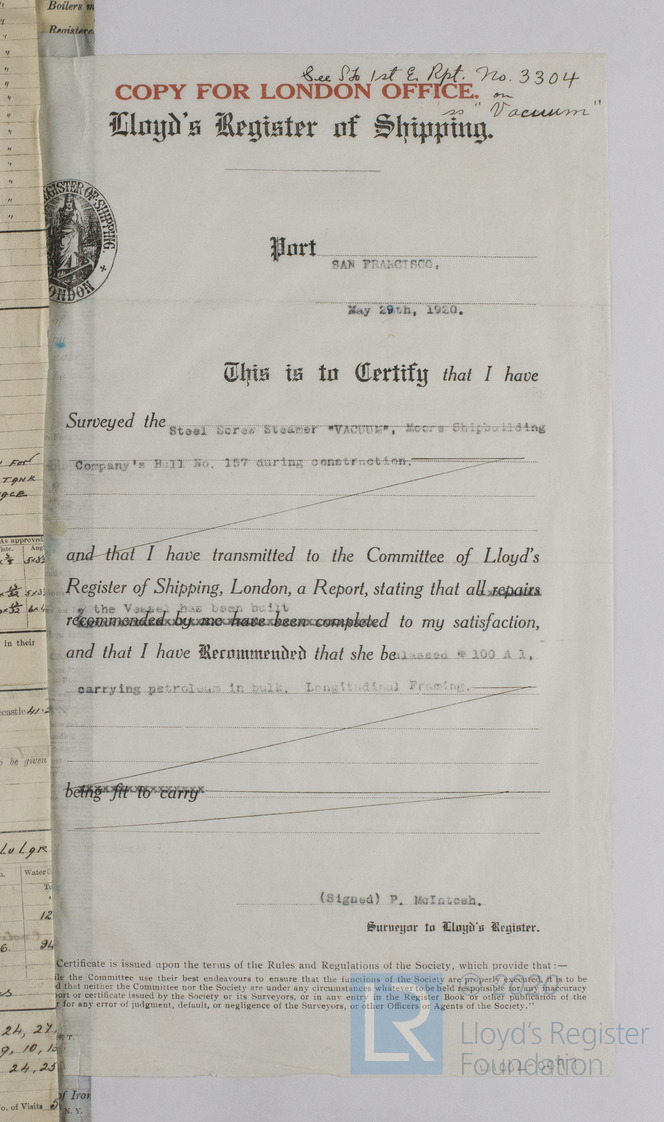 Boilers
Registere
See Sto 1st E. Rpt. No. 3304
COPY FOR LONDON OFFICE.
on
ss "Vacuum"
Lloyd's Register of Shipping.
REGISTER OF SHIPPING.
LONDON
Port
SAN FRANCISCO,
May 29th, 1920.
This is to Certify that I have
Surveyed the Steel Screw Steamer "VACUUM", Moore Shipbuilding
Company's Hull No. 157 during construction.
and that I have transmitted to the Committee of Lloyd's
Register of Shipping, London, a Report, stating that all repairs
the Vessel has been built
recommended by me have been completed to my satisfaction,
and that I have Recommended that she be classed 100 A 1.
carrying petroleum in bulk. Longitudinal Framing.
being fit to carry
(Signed) P. McIntosh.
Surveyor to Lloyd's Register.
Certificate is issued upon the terms of the Rules and Regulations of the Society, which provide that:—
the Committee use their best endeavours to ensure that the functions of the Society are properly executed, it is to be
that neither the Committee nor the Society are under any circumstances whatever to be held responsible for any inaccuracy
or certificate issued by the Society or its Surveyors, or in any entry in the Register Book or other publication of the
for any error of judgment, default, or negligence of the Surveyors, or other Officers or Agents of the Society."
© 2020
LR
Lloyd's Register
Foundation
As approved
in their
be given
Water
12
94
24, 27
9, 10,
24, 25
of Iron
No. of Visits
N. Y.